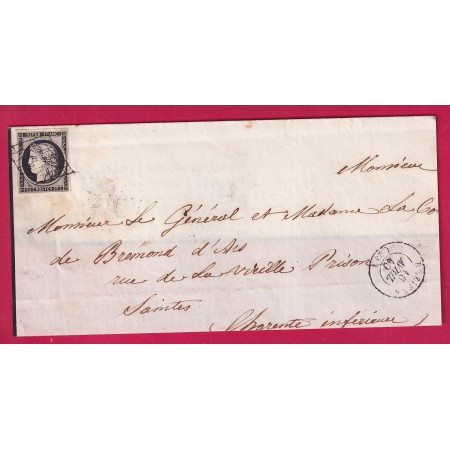 REPUB. FRANC.
Monsieur
Monsieur Le Général et Madame La Co
de Bremond d'Ars
rue de La Vieille Prison
Saintes
(Charente inférieure)